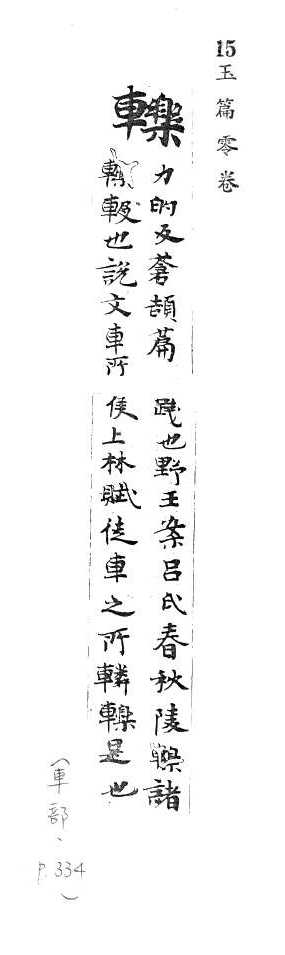 15玉篇零卷
轢
力的反蒼頡篇
也說文車所
踐也野王案呂氏春秋陵轢諸
侯上林賦徒車之所轔轢是也
(車部、P.334)